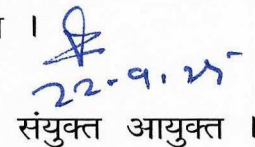 ।
22.9.25
संयुक्त आयुक्त ।